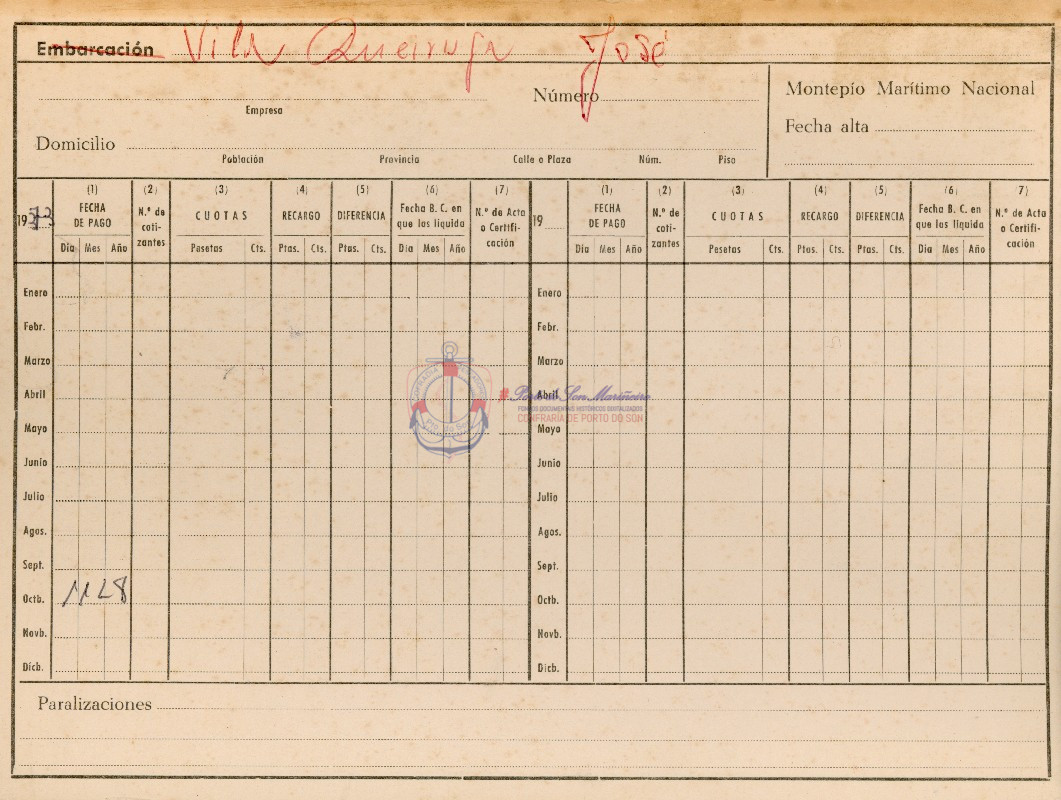 Embarcación Vila Queiruga José
Empresa
Número
Montepío Marítimo Nacional
Fecha alta
Domicilio
Población Provincia Calle o Plaza Núm. Piso
19 (1) FECHA DE PAGO (2) N.º de cotizantes (3) CUOTAS (4) RECARGO (5) DIFERENCIA (6) Fecha B. C. en que los liquida (7) N.º de Acta o Certificación 19 (1) FECHA DE PAGO (2) N.º de cotizantes (3) CUOTAS (4) RECARGO (5) DIFERENCIA (6) Fecha B. C. en que los liquida 7) N.º de Acta o Certificación
Día Mes Año Pesetas Cts. Ptas. Cts. Ptas. Cts. Día Mes Año Día Mes Año Pesetas Cts. Ptos. Cts. Ptas. Cts. Día Mes Año
Enero Enero
Febr. Febr.
Marzo Marzo
Abril Abril
# Porto do Son Mariñeiro
FONDOS DOCUMENTAIS HISTÓRICOS DIXITALIZADOS
CONFRARÍA DE PORTO DO SON
Mayo Mayo
Junio Junio
Julio Julio
Agos. Agos.
Sept. Sept.
Octb. Octb.
Novb. Novb.
Dicb. Dicb.
Paralizaciones